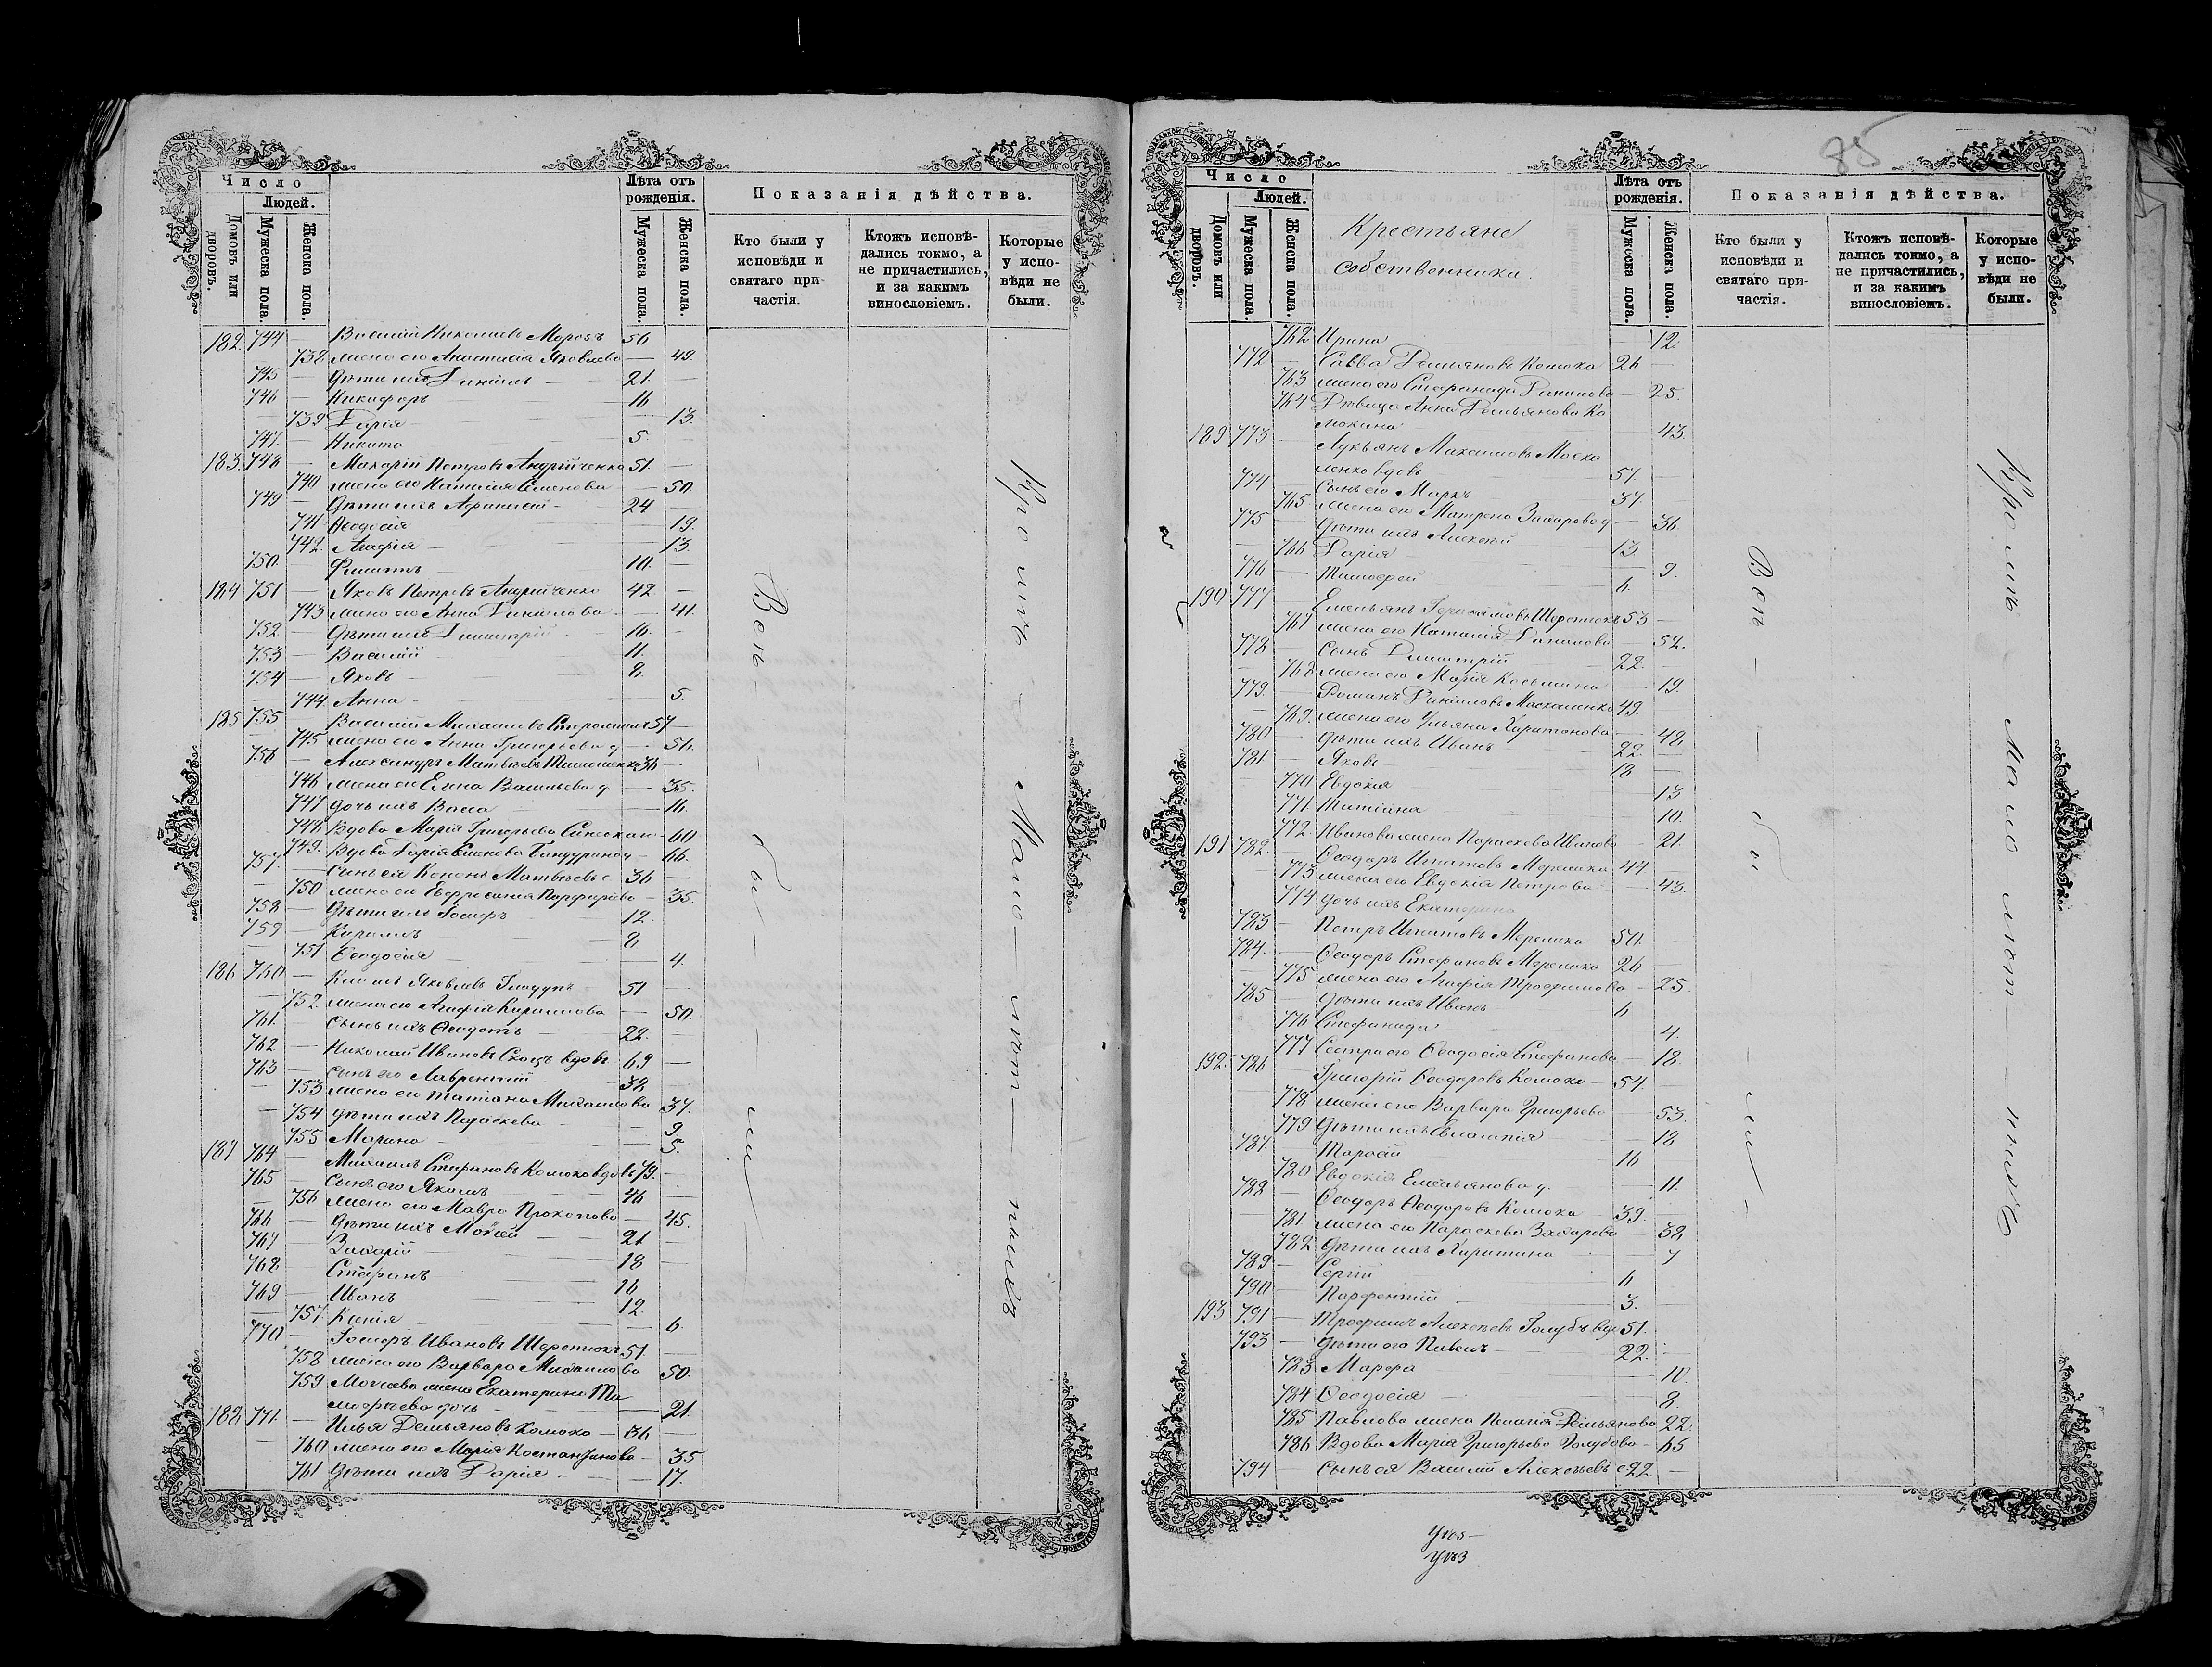 Число
Людей.
Домовъ или дворовъ.
Мужеска пола.
Женска пола.
Лѣта отъ рожденія.
Мужеска пола.
Женска пола.
Показанія дѣйства.
Кто были у исповѣди и святаго причастія.
Ктожъ исповѣдались токмо, а не причастились, и за какимъ винословіемъ.
Которые у исповѣди не были.
182. 744 — Василій Николаевъ Морозъ 56
738. жена его Анастасія Яковлева — 49.
745 — дѣти ихъ Даніилъ — 21. —
746 — Никифоръ 16
739 Дарія — 13.
747. — Никита 5.
183. 748 — Макарій Петровъ Андрійченко 51. —
740 жена его Наталія Семенова — 50.
749 — дѣти ихъ Афанасій — 24 —
741 Ѳеодосія — 19.
742. Агафія — 13.
750. — Филиппъ 10. —
184 751 — Яковъ Петровъ Андрійченко 42 —
743 жена его Анна Даніилова — 41.
752 — дѣти ихъ Димитрій 16. —
753 — Василій 11.
754 — Яковъ — 8.
744 Анна — 5.
185 755 — Василій Михаиловъ 57 —
745 жена его Анна Григорьева д — 56.
756 — Александръ Матвѣевъ 36 —
746 жена его Елена Васильева д. — 35.
747 дочь ихъ Васса — 16.
748. Вдова Марія Григорьева — 60
749. Вдова Дарія — 66.
757. — Сынъ ея Кононъ Матвѣевъ с. 36 —
750 жена его Евфросинія Порфирова — 35.
758 — дѣти ихъ Іосифъ 12.
759 — Кириллъ 8
751 Ѳеодосія — 4.
186 760 — Яковлевъ 51
752. жена его Агафія Кириллова — 50.
761. — сынъ ихъ Ѳеодотъ — 22.
762 — Николай Ивановъ вдовъ 69 —
763 — сынъ его Лаврентій 38
753 жена его Татіана Михаилова 37.
754 дѣти ихъ Параскева — 9
755 Марина — 5.
187 764 — Михаилъ Стефановъ Комоха вдовъ 79. —
765 — Сынъ его Якимъ 46
756 жена его Мавра Прокопова — 45.
766 — дѣти ихъ Моисей 21
767 — Захарій 18
768 — Стефанъ 16
769 — Иванъ 12.
757. Ксенія — 6.
770 — Іосифъ Ивановъ 51.
758 жена его Варвара Михаилова 50.
759 Моисеева жена Екатерина Тимофѣева дочь — 21.
188 771. — Илья Демьяновъ Комоха — 36 —
760 жена его Марія Костантинова — 35
761 дѣти ихъ Дарія — 17.
Всѣ — бы — ли
Кромѣ — мало — лѣт — нихъ
85
Число
Людей.
Домовъ или дворовъ.
Мужеска пола.
Женска пола.
Крестьяне
собственники.
Лѣта отъ рожденія.
Мужеска пола.
Женска пола.
Показанія дѣйства.
Кто были у исповѣди и святаго причастія.
Ктожъ исповѣдались токмо, а не причастились, и за какимъ винословіемъ.
Которые у исповѣди не были.
762 Ирина — 12.
772 — Савва Демьяновъ Комоха 26 —
763 жена его Стефанида Данилова — 25.
764 Дѣвица Анна Демьянова Комохина — 43.
189 773 — Лукьянъ Максимовъ Москаленко вдовъ 57.
774 — Сынъ его Маркъ 37. —
765. жена его Матрена Захарова д — 36.
775 — дѣти ихъ Алексій 13
766 Дарія — 9.
776 — Тимофей 6.
190 777 — Емельянъ Герасимовъ 53 —
767 жена его Наталія Данилова — 52.
778 — Сынъ Димитрій 22. —
768 жена его Марія Косьмина — 19.
779. — Романъ Даніиловъ Москаленко 49.
769. жена его Ульяна Харитонова — 48.
780 — дѣти ихъ Иванъ 22. —
781 — Яковъ 18
770 Евдокія — 13
771 Татіана — 10.
772. Иванова жена Параскева Иванова — 21.
191 782. — Ѳеодоръ Игнатовъ Мережка 44
773 жена его Евдокія Петрова — 43.
774 дочь ихъ Екатерина
783 — Петръ Игнатовъ Мережка 50.
784. — Ѳеодоръ Стефановъ Мережка 26 —
775 жена его Агафія Трофимова — 25.
785 — дѣти ихъ Иванъ 6
776 Стефанида — 4.
777 Сестра его Ѳеодосія Стефанова — 18.
192. 786 — Григорій Ѳеодоровъ Комоха — 54. —
778 жена его Варвара Григорьева — 53.
779 дѣти ихъ Евлампія — 18
787. — Тарасій 16
780 Евдокія Емельянова д. — 11.
788 — Ѳеодоръ Ѳеодоровъ Комоха 39. —
781 жена его Параскева Захарова — 38.
782 дѣти ихъ Харитина — 7
789 — Сергій 6
790 — Парфентій 3.
193 791 — Трофимъ Алексѣевъ Голубъ вдъ 51.
793 — дѣти его Павелъ 22. —
783 Марфа — 10.
784 Ѳеодосія — 8.
785 Павлова жена Пелагія Демьянова 22.
786 Вдова Марія Григорьева Голубова — 65
794 — сынъ ея Василій Алексѣевъ с 22. —
Всѣ — бы — ли —
Кромѣ мало лѣт — нихъ